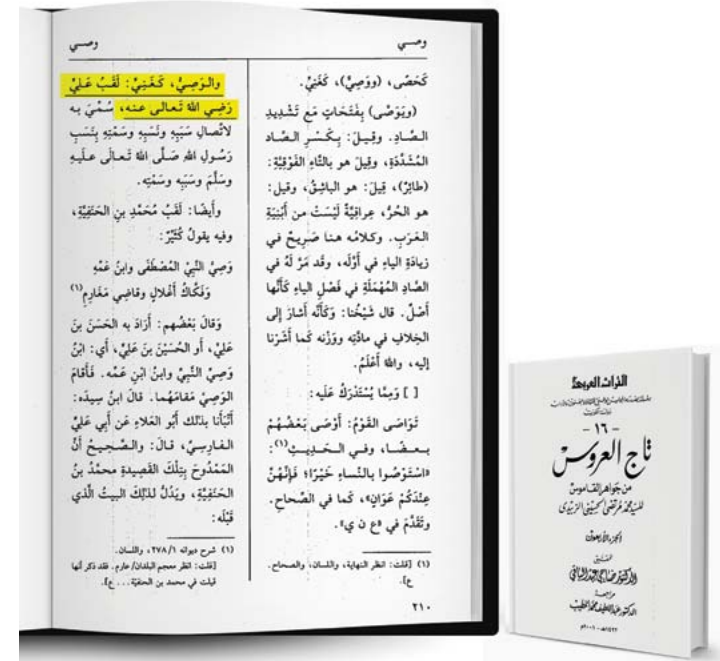 وصــي
وصــي
كَحَصًى، (ووَصِيٌّ)، كَغَنِيٍّ.
(ويَوَصَّى) بِفَتَحَاتٍ مَع تَشْدِيدِ
الـصَّـادِ. وقِـيـلَ: بِـكَـسْـرِ الـصَّـاد
المُشَدَّدَةِ، وقِيلَ هو بالتَّاءِ الفَوْقِيَّةِ:
(طائِرٌ)، قِيلَ: هو الباشِقُ، وقيل:
هو الحُرُّ، عِراقِيَّةٌ لَيْسَتْ من أَبْنِيَةِ
العَرَبِ. وكلامُه هنا صَرِيحٌ في
زيادَةِ الياءِ في أَوَّلَه، وقَد مَرَّ لَهُ في
الصَّادِ المُهْمَلَةِ في فَصْلِ الياءِ كَأَنَّها
أَصْلٌ. قال شَيْخُنا: وَكَأَنَّه أَشارَ إلى
الخِلافِ في مادَّتِه ووَزْنِه كَما أَشَرْنا
إليه، واللهُ أَعْلَمُ.
[ ] وَمِمَّا يُسْتَدْرَكُ عَلَيه:
تَوَاصَى القَوْمُ: أَوْصَى بَعْضُهُمْ
بـعـضًـا، وفـي الـحَـدِيـثِ(١):
«اسْتَوْصُوا بالنِّساءِ خَيْرًا؛ فَإِنَّهُنَّ
عِنْدَكُمْ عَوَانٍ»، كَما في الصِّحاحِ.
وتَقَدَّمَ في «ع ن ي».
(١) [قلت: انظر النهاية، واللسان، والصحاح.
ع].
والـوَصِـيُّ، كَـغَنِـيٍّ: لَقَبُ عَـلِيٍّ
رَضِي اللهُ تَعالى عنه، سُمِّيَ به
لاتِّصالِ سَبَبِهِ ونَسَبِهِ وسَمْتِهِ بِنَسَبِ
رَسُولِ اللهِ صَلَّى اللهُ تَعالَى عليهِ
وسَلَّمَ وسَبَبِه وسَمْتِه.
وأَيضًا: لَقَبُ مُحَمَّدِ بنِ الحَنَفِيَّةِ،
وفيه يقولُ كُثَيِّرٌ:
وَصِيُّ النَّبِيِّ المُصْطَفَى وابنُ عَمِّهِ
وَفَكَّاكُ أَغْلالٍ وقاضِي مَغَارِمِ(١)
وَقالَ بَعْضُهم: أَرَادَ به الحَسَنَ بنَ
عَلِيٍّ، أو الحُسَيْنَ بنَ عَلِيٍّ، أي: ابْنُ
وَصِيِّ النَّبِيِّ وابنُ ابْنِ عَمِّه. فَأَقامَ
الوَصِيَّ مَقامَهُما. قالَ ابنُ سِيدَه:
أَنْبَأَنا بذَلك أَبُو العَلاءِ عَن أَبي عَلِيٍّ
الـفـارِسِيِّ، قـالَ: والـصَّـحِيـحُ أَنَّ
المَمْدُوحَ بِتِلْكَ القَصِيدةِ محمَّدُ بنُ
الحَنَفِيَّةِ، ويَدُلُّ لذَلِكَ البيتُ الَّذي
قَبْلَه:
(١) شرح ديوانه ٢٧٨/١، واللسان.
[قلت: انظر معجم البلدان/عارم. فقد ذكر أنها
قيلت في محمد بن الحنفيّة... ع].
٢١٠
التراث العربي
- ١٦ -
تاج العروس
من جواهر القاموس
للسيد محمد مرتضى الحسيني الزبيدي
الجزء الأربعون
تحقيق
الدكتور ضاحي عبد الباقي
مراجعة
الدكتور عبد اللطيف محمد الخطيب